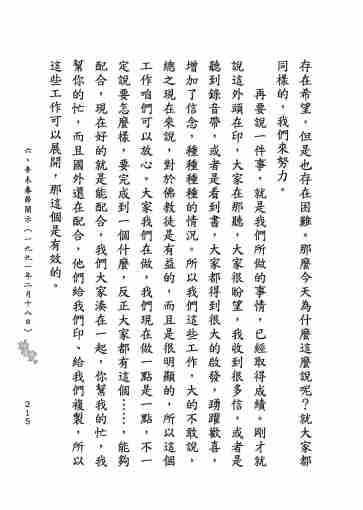 存在希望，但是也存在困難。那麼今天為什麼這麼說呢？就大家都
同樣的，我們來努力。
再要說一件事，就是我們所做的事情，已經取得成績。剛才就
說這外頭在印，大家在那聽，大家很盼望，我收到很多信，或者是
聽到錄音帶，或者是看到書，大家都得到很大的啟發，踴躍歡喜，
增加了信念，種種種種的情況。所以我們這些工作，大的不敢說，
總之現在來說，對於佛教徒是有益的，而且是很明顯的，所以這個
工作咱們可以放心。大家我們在做，我們現在做一點是一點，不一
定說要怎麼樣，要完成到一個什麼，反正大家都有這個……，能夠
配合，現在好的就是能配合，我們大家湊在一起，你幫我的忙，我
幫你的忙，而且國外還在配合，他們給我們印、給我們複製，所以
這些工作可以展開，那這個是有效的。
六、辛未春節開示（一九九一年二月十八日）
215